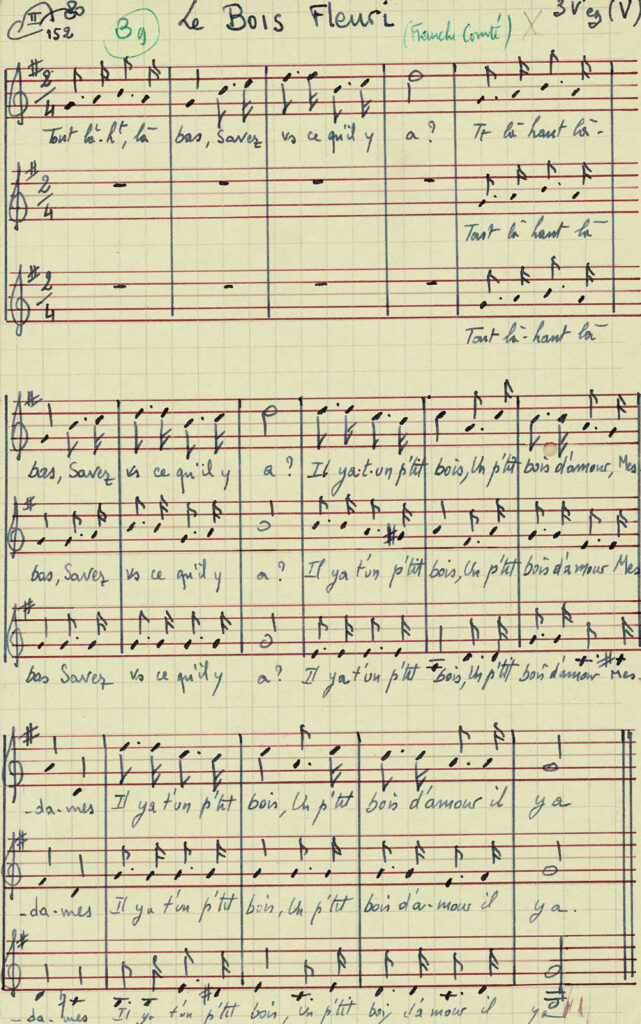 II 80 Le Bois Fleuri 3 Vieg (V)
152 Bg (Franche Comté) X
2/4
Tout là-ht, là bas, Savez vs ce qu'il y a? Tt là haut là-
2/4
Tout là haut là
2/4
Tout là-haut là
bas, Savez vs ce qu'il y a? Il ya-t-un p'tit bois, Un p'tit bois d'amour, Mes
bas, Savez vs ce qu'il y a? Il ya t'un p'tit bois, Un p'tit bois d'amour Mes
bas Savez vs ce qu'il y a? Il ya t'un p'tit bois, Un p'tit bois d'amour Mes.
-da-mes Il ya t'un p'tit bois, Un p'tit bois d'amour il ya
-da-mes Il ya t'un p'tit bois, Un p'tit bois d'a-mour il ya.
-da-mes Il ya t'un p'tit bois, Un p'tit bois d'a-mour il ya